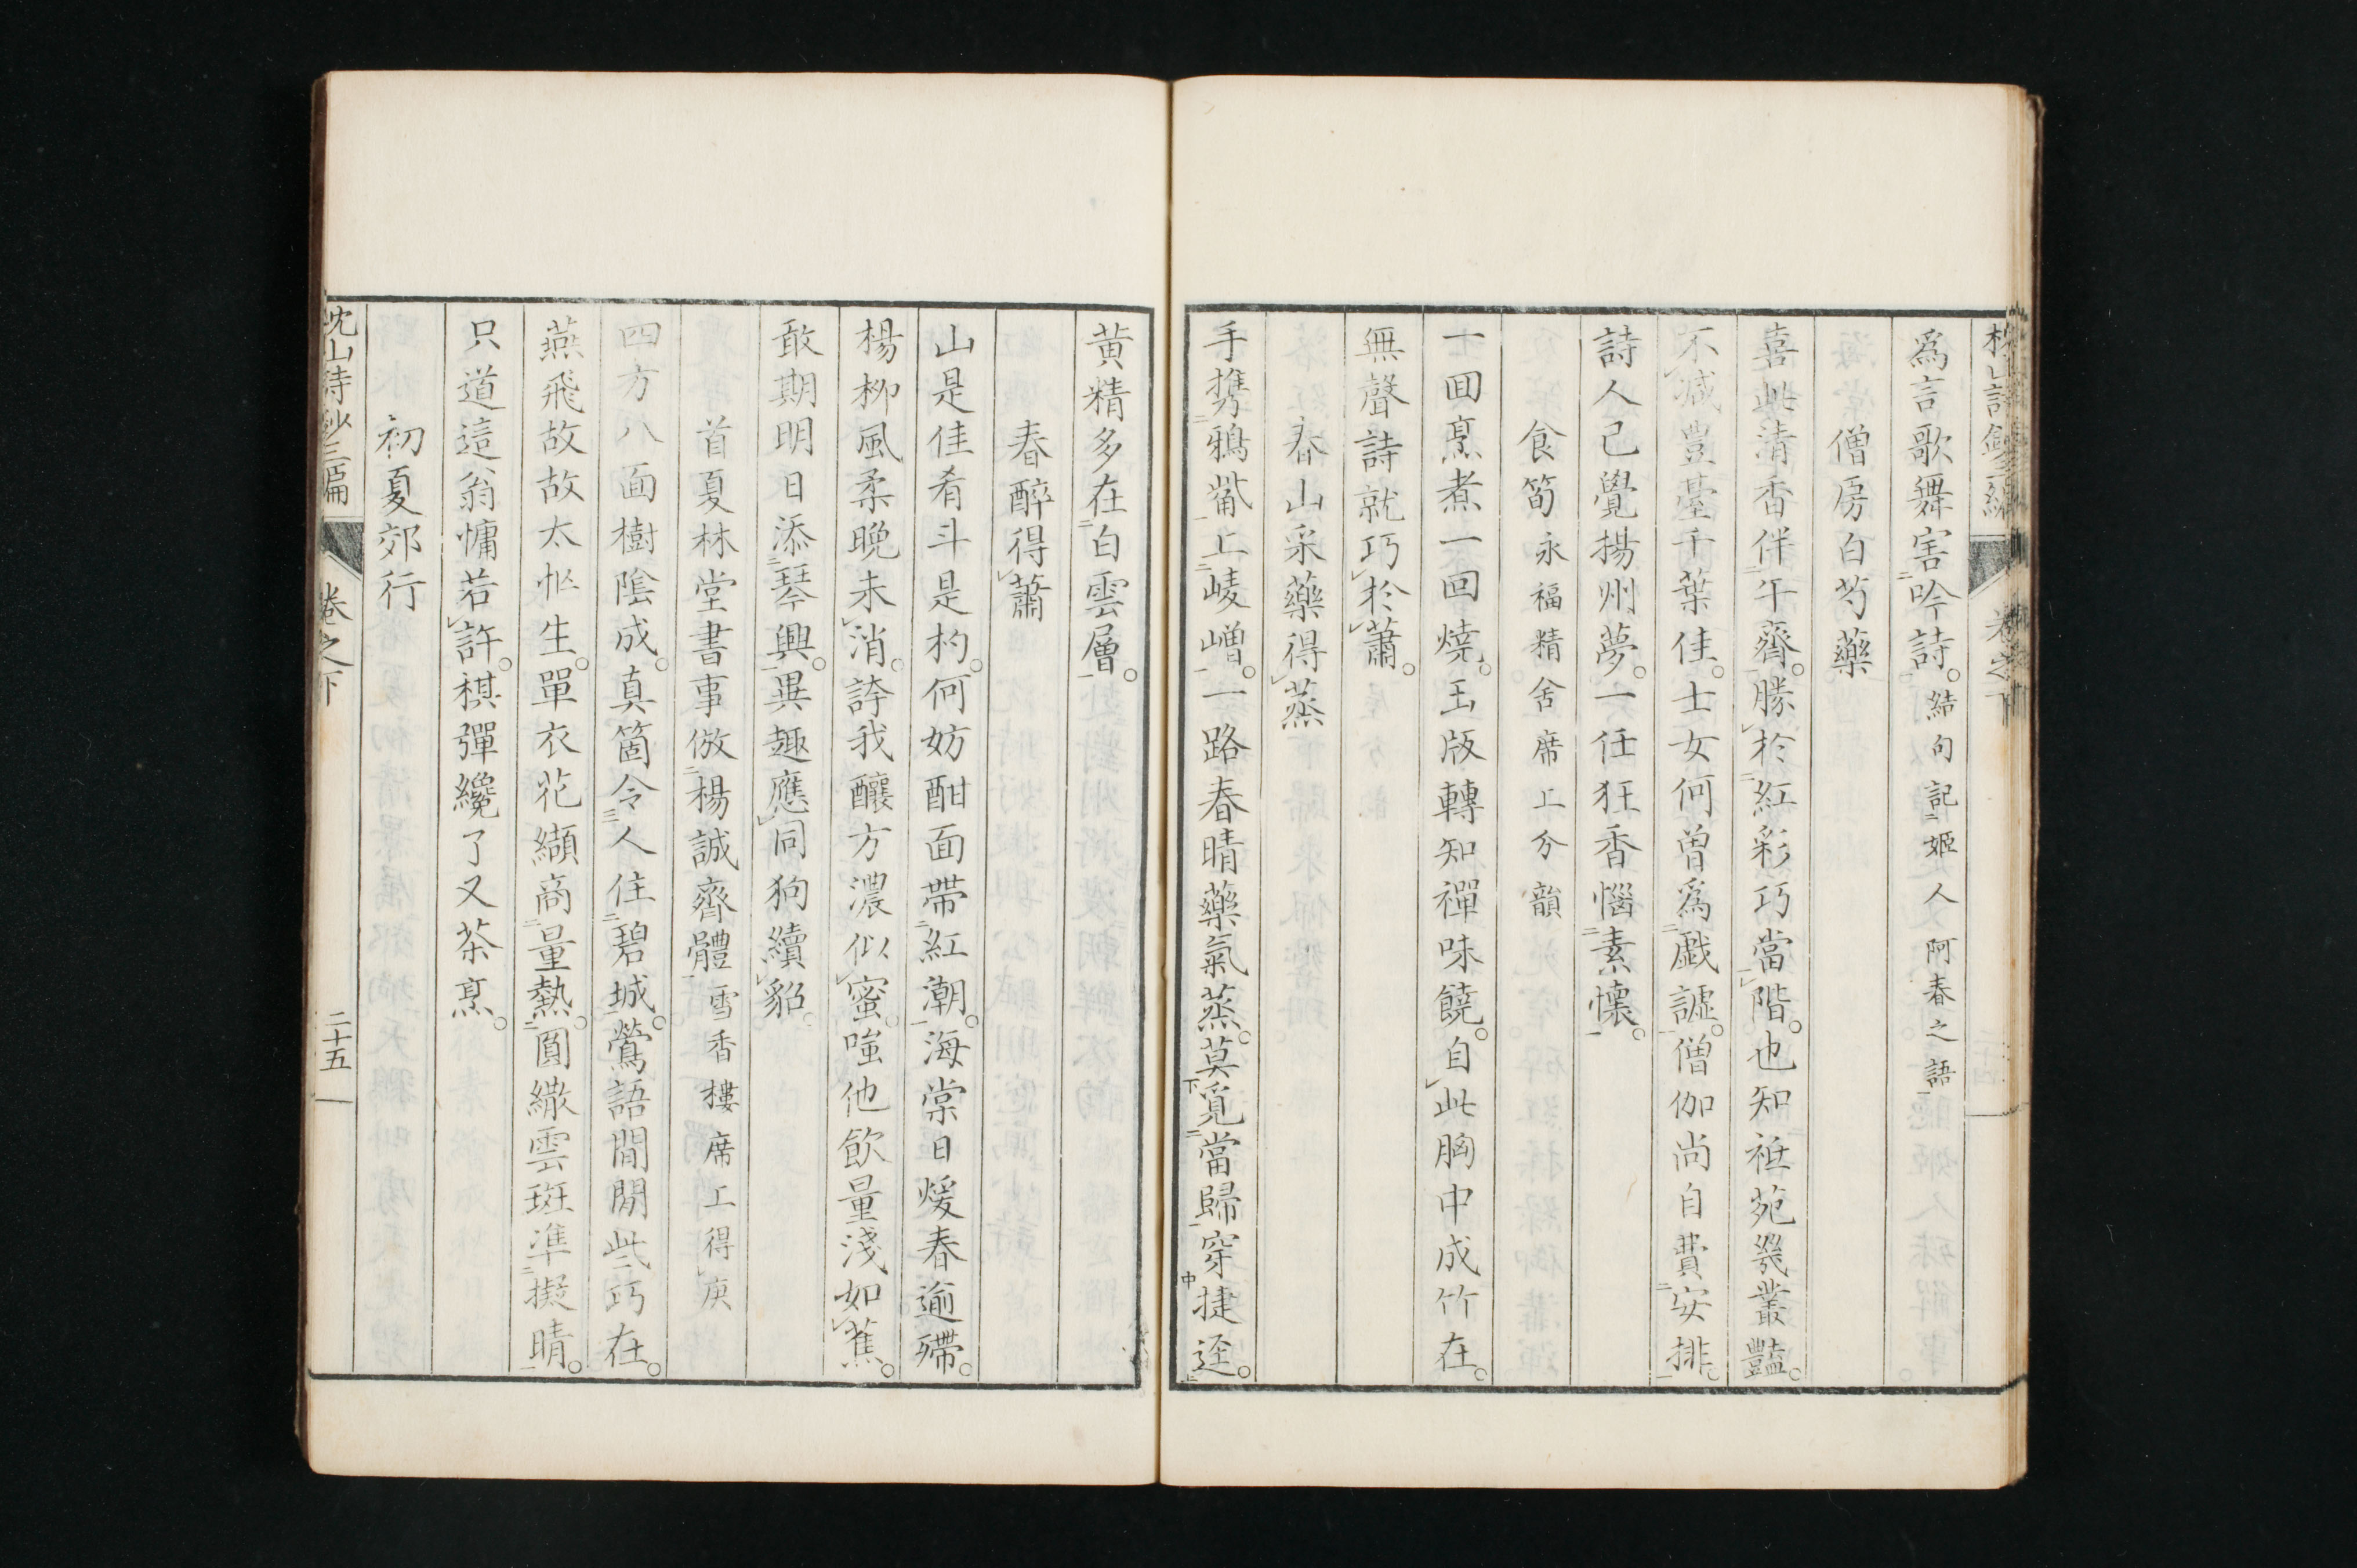 爲言歌舞害吟詩。結句記姬人阿春之語
僧房白芍藥
喜此清香伴午齋。勝於紅彩巧當階。也知祗苑幾叢豔。
不減豊臺千葉佳。士女何曾爲戯謔。僧伽尚自費安排。
詩人已覺揚州夢。一任狂香惱素懷。
食筍永福精舍席上分韻
一回烹煮一回燒。玉版轉知禪味饒。自此胸中成竹在。
無聲詩就巧於蕭。
春山采藥得蒸
手携鴉觜上崚嶒。一路春晴藥氣蒸。莫覓當歸穿捷逕。
黄精多在白雲層。
春醉得蕭
山是佳肴斗是杓。何妨酣面帶紅潮。海棠日煖春逾殢。
楊柳風柔晚未消。誇我釀方濃似蜜。嗤他飲量淺如蕉。
敢期明日添琴興。異趣應同狗續貂。
首夏林堂書事倣楊誠齋體雪香樓席上得庚
四方八面樹陰成。真箇令人住碧城。鶯語間關些巧在。
燕飛故故太忙生。單衣花纈商量熱。圓繖雲斑準擬晴。
只道這翁慵若許。棋彈纔了又茶烹。
初夏郊行
枕山詩鈔三編 卷之下 二十五